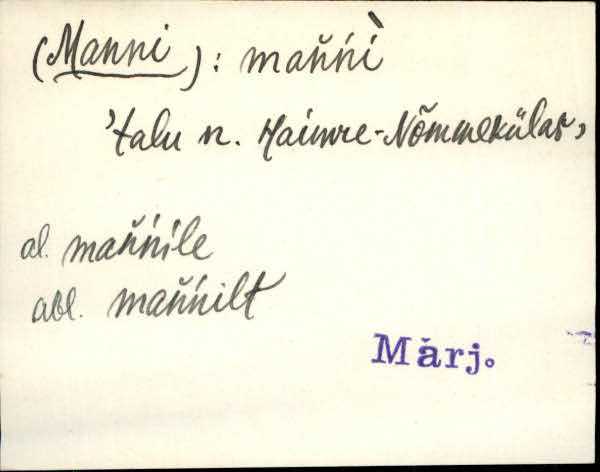 (Manni): mǎńńì
'talu n. Haimre-Nõmmekülas,
al. mǎńńile
abl. mǎńńilt
Märj.